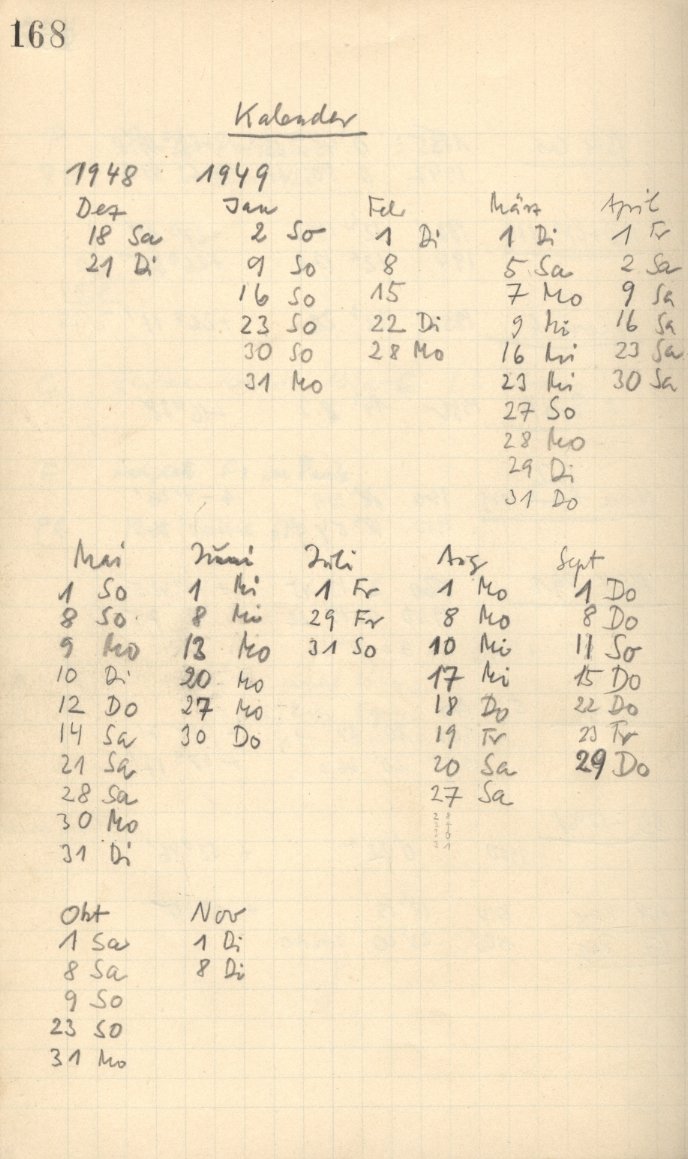 168
Kalender
1948 1949
Dez Jan Feb März April
18 Sa 2 So 1 Di 1 Di 1 Fr
21 Di 9 So 8 5 Sa 2 Sa
16 So 15 7 Mo 9 Sa
23 So 22 Di 9 Mi 16 Sa
30 So 28 Mo 16 Mi 23 Sa
31 Mo 23 Mi 30 Sa
27 So
28 Mo
29 Di
31 Do
Mai Juni Juli Aug Sept
1 So 1 Mi 1 Fr 1 Mo 1 Do
8 So 8 Mi 29 Fr 8 Mo 8 Do
9 Mo 13 Mo 31 So 10 Mi 11 So
10 Di 20 Mo 17 Mi 15 Do
12 Do 27 Mo 18 Do 22 Do
14 Sa 30 Do 19 Fr 23 Fr
21 Sa 20 Sa 29 Do
28 Sa 27 Sa
30 Mo 28
31 Di 31
Okt Nov
1 Sa 1 Di
8 Sa 8 Di
9 So
23 So
31 Mo